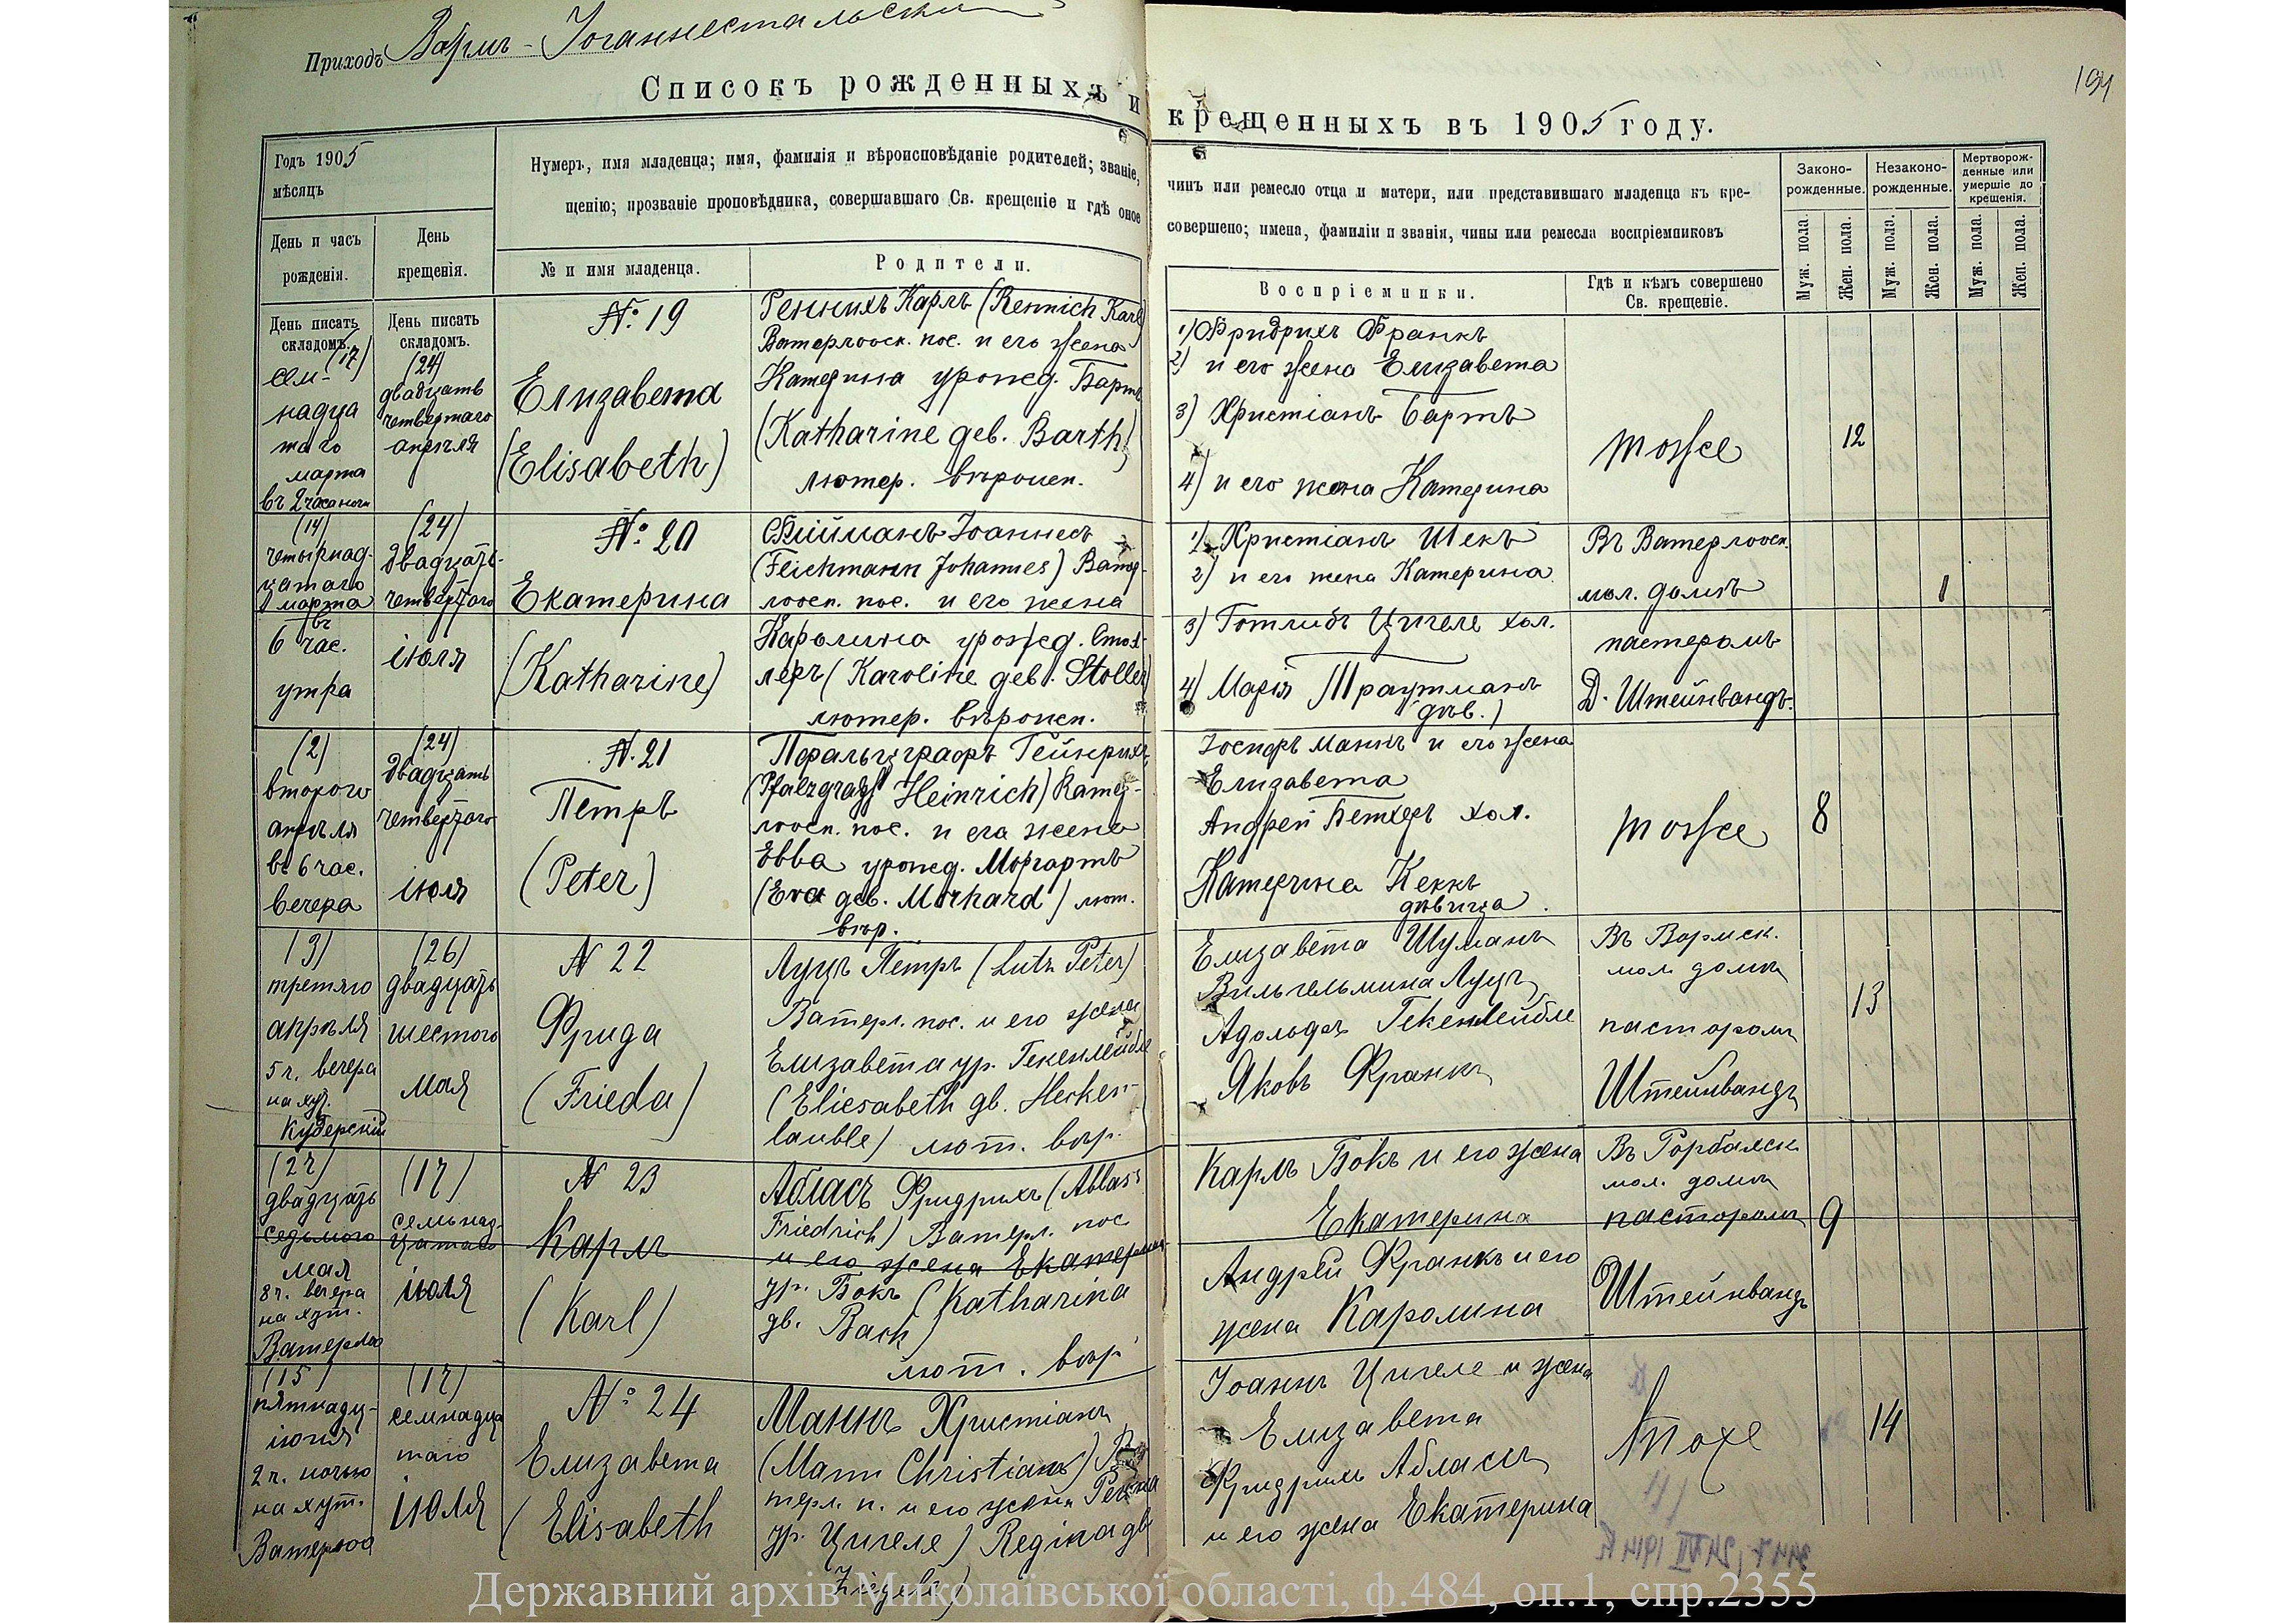 Приходъ Вормс-Іоганнестальскій
Списокъ рожденныхъ и крещенныхъ въ 1905 году.
194
Годъ 1905
мѣсяцъ
День и часъ
рожденія.
День
крещенія.
Нумеръ, имя младенца; имя, фамилія и вѣроисповѣданіе родителей; званіе, чинъ или ремесло отца и матери, или представившаго младенца къ кре-
щенію; прозваніе проповѣдника, совершавшаго Св. крещеніе и гдѣ оное совершено; имена, фамиліи и званія, чины или ремесла воспріемниковъ
№ и имя младенца.
Родители.
Воспріемники.
Гдѣ и кѣмъ совершено
Св. крещеніе.
Законо-
рожденные.
Незаконо-
рожденные.
Мертворож-
денные или
умершіе до
крещенія.
Муж. пола.
Жен. пола.
Муж. пола.
Жен. пола.
Муж. пола.
Жен. пола.
День писать
складомъ.
День писать
складомъ.
(17)
сем-
надца
таго
марта
въ 2 часа ночи
(24)
двадцать
четвертаго
апрѣля
№ 19
Елизавета
(Elisabeth)
Реннихъ Карлъ (Rennich Karl)
Ватерлооск. пос. и его жена
Катерина урожд. Бартъ
(Katharine geb. Barth)
лютер. вѣроисп.
1) Фридрихъ Франкъ
2) и его жена Елизавета
3) Христіанъ Бартъ
4) и его жена Катерина
тоже
12
(14)
четырнад-
цатаго
марта
въ
6 час.
утра
(24)
двадцать-
четвертаго
іюля
№ 20
Екатерина
(Katharine)
Іоаннесъ
(Feichmann Johannes) Ватер-
лооск. пос. и его жена
Каролина урожд. Штол-
леръ (Karoline geb. Stoller)
лютер. вѣроисп.
1) Христіанъ Шекъ
2) и его жена Катерина
3) Готлибъ Цигеле хол.
4) Марія Траутманъ
(дѣв.)
Въ Ватерлооск.
мол. домѣ
пасторомъ
Д. Штейнвандъ.
1
(2)
второго
апрѣля
въ 6 час.
вечера
(24)
двадцать
четвертаго
іюля
№ 21
Петръ
(Peter)
Пфальцграфъ Гейнрихъ
(Pfalzgraf Heinrich) Ватер-
лооск. пос. и его жена
Евва урожд. Моргартъ
(Eva geb. Morhard) лют.
вѣр.
Іосифъ Маннъ и его жена
Елизавета
Андрей Бетхеръ хол.
Катерина Кеккъ
дѣвица.
тоже
8
(3)
третяго
апрѣля
5 ч. вечера
на хут.
Куберскій
(26)
двадцать
шестого
мая
№ 22
Фрида
(Frieda)
Луцъ Петръ (Lutz Peter)
Ватерл. пос. и его жена
Елизавета ур. Гекенлейбле
(Eliesabeth gb. Hecken-
lauble) лют. вѣр.
Елизавета Шуманъ
Вильгельмина Луцъ
Адольфъ Гекенлейбле
Яковъ Франкъ
Въ Вормск.
мол. домѣ
пасторомъ
Штейнвандъ
13
(27)
двадцать
седьмого
мая
8 ч. вечера
на хут.
Ватерлоо
(17)
семьнад-
цатаго
іюля
№ 23
Карлъ
(Karl)
Абласъ Фридрихъ (Ablass
Friedrich) Ватерл. пос
и его жена Екатерина
ур. Бокъ (Katharina
gb. Back)
лют. вѣр
Карлъ Бокъ и его жена
Екатерина
Андрей Франкъ и его
жена Каролина
Въ Рорбахск.
мол. домѣ
пасторомъ
Штейнвандъ
9
(15)
пятнадц-
іюня
2 ч. ночью
на хут.
Ватерлоо
(17)
семнадца
таго
іюля
№ 24
Елизавета
(Elisabeth
Маннъ Христіанъ
(Mann Christian) Ва
терл. п. и его жена Регина
ур. Цигеле) Regina gb
Ziegele)
Іоаннъ Цигеле и жена
Елизавета
Фридрихъ Абласъ
и его жена Екатерина
Тоже
14
Державний архів Миколаївської області, ф.484, оп.1, спр.2355